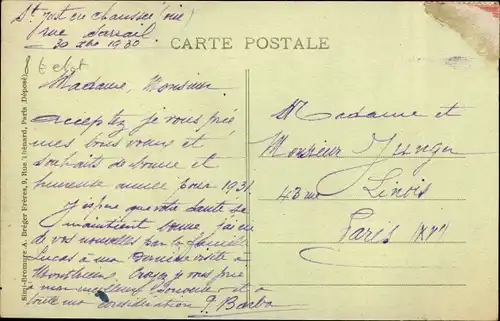 St Just en Chaussée (Oise)
rue Sarrail
30 Xbre 1930
CARTE POSTALE
Madame, Monsieur
acceptez je vous prie
mes bons vœux et
souhaits de bonne et
heureuse année pour 1931
J'espère que votre santé se
maintient bonne, j'ai eu
de vos nouvelles par la famille
Lucas à ma dernière visite à
Croyez je vous prie
à mon meilleur souvenir et à
toute ma considération P. Barba
Madame et
Monsieur Junger
43 rue Linois
Paris (XV)
Simi-Bromure A. Breger Frères, 9, Rue Thénard, Paris (Déposé)